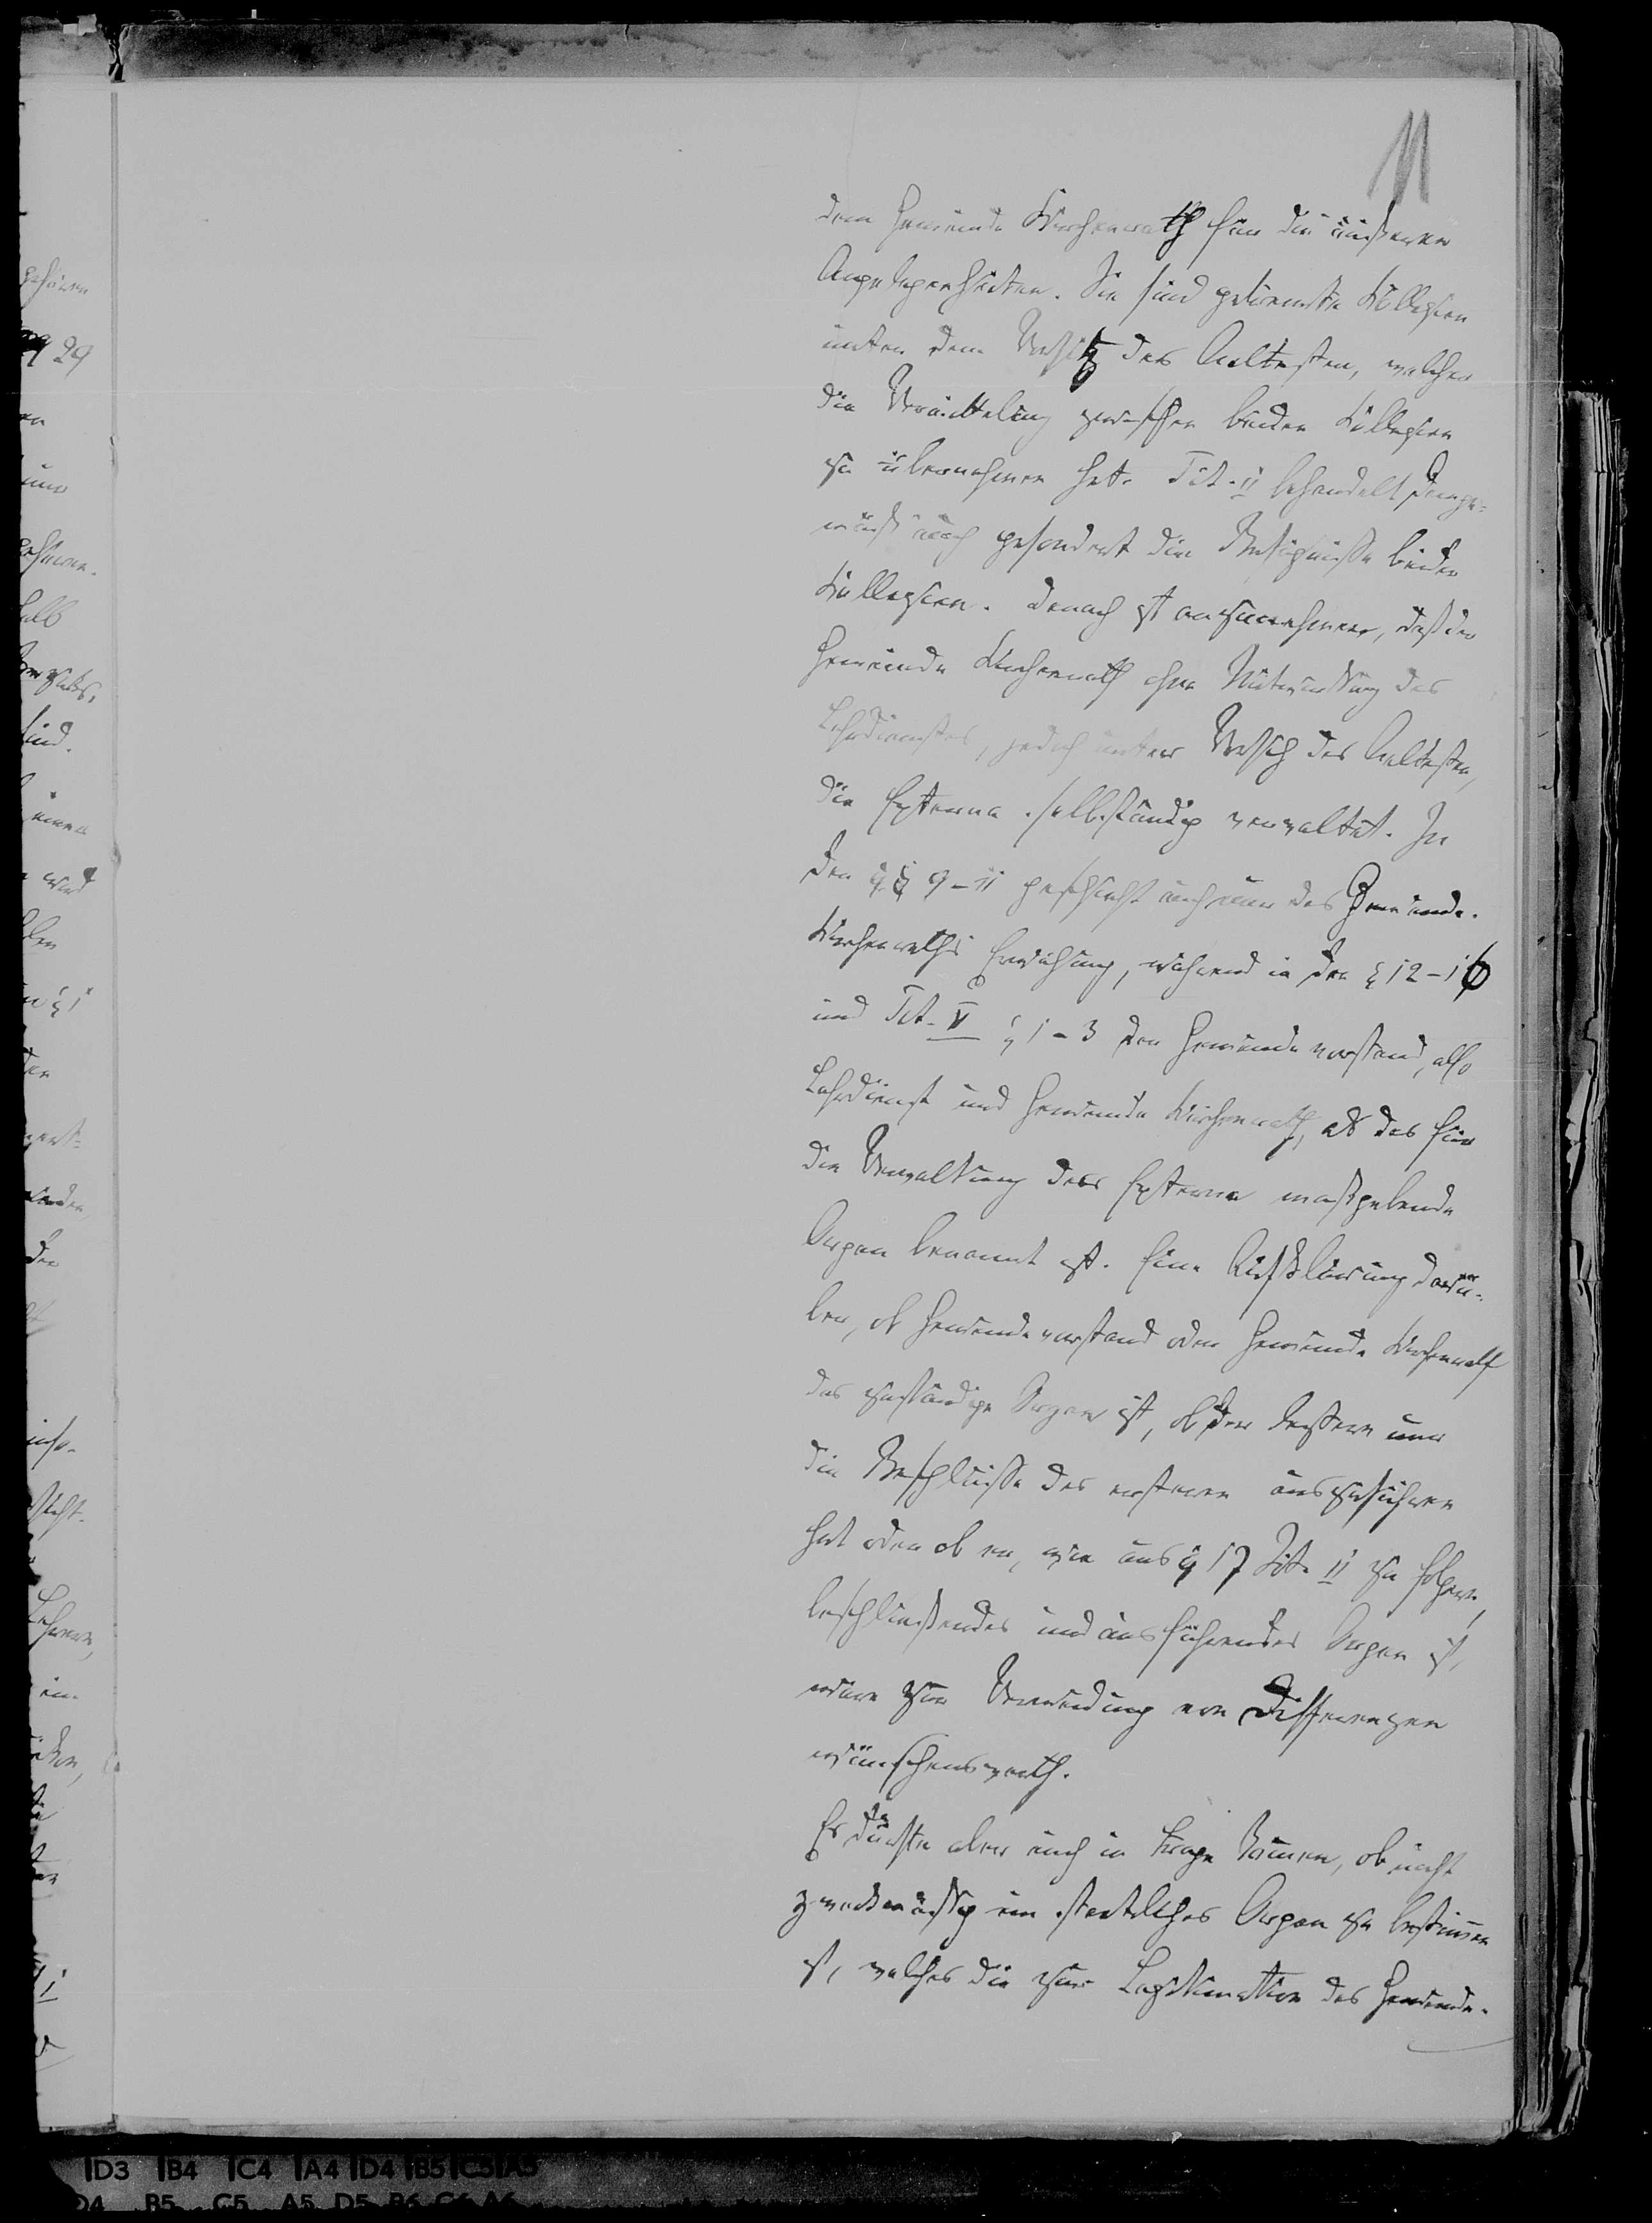 11
dem Gemeinde Kirchenrath für die äußeren
Angelegenheiten. Sie sind getrennte Kollegien
unter dem Vorsitz des Aeltesten, welcher
die Vermittelung zwischen beiden Kollegien
zu übernehmen hat. Tit. II behandelt demge-
mäß auch gesondert die Befugnisse beider
Kollegien. Danach ist anzunehmen, daß der
Gemeinde Kirchenrath ohne Mitwirkung des
Lehrdienstes, jedoch unter Vorsitz des Aeltesten,
die Externa selbständig verwaltet. In
den §§ 9-11 geschieht auch nur des Gemeinde-
Kirchenraths Erwähnung, während in den § 12-16
und Tit. V § 1-3 der Gemeindevorstand, also
Lehrdienst und Gemeinde Kirchenrath, als das für
die Verwaltung der Externa maßgebende
Organ benannt ist. Eine Aufklärung darü-
ber, ob Gemeindevorstand oder Gemeinde Kirchenrath
das zuständige Organ ist, ob der letztere nur
die Beschlüsse des ersteren auszuführen
hat oder ob er, wie aus § 17 Tit. II zu folgern,
beschließendes und ausführendes Organ ist,
wäre zur Vermeidung von Differenzen
wünschenswerth.
Es dürfte aber auch in Frage kommen, ob nicht
zweckmäßig ein staatliches Organ zu bestimmen
ist, welches die zur Legitimation des Gemeinde-
gehören
29
sind.
wird
§ 1
der
Lehrern,
D3 B4 C4 A4 D4 B5 C5 A5
D4 B5 C5 A5 D5 B6 C6 A6